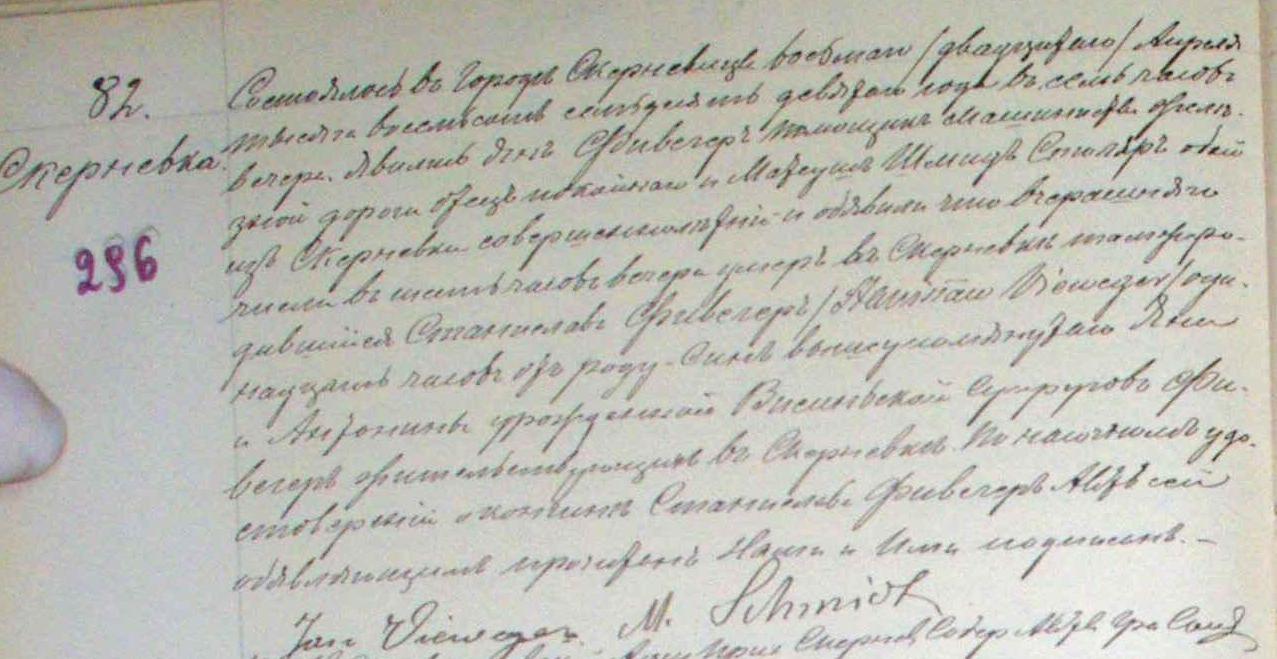 82.
Скерневка.
296
Состоялось въ городѣ Скерневицѣ восьмаго /двадцатаго/ Апрѣля
тысяча восемьсотъ семьдесятъ девятаго года въ семь часовъ
вечера. Явились Янъ Фивегеръ помощникъ машиниста желѣ-
зной дороги отецъ покойнаго и Матеушъ Шмидъ Столяръ оба
изъ Скерневки совершеннолѣтніи и объявили что вчерашняго
числа въ шесть часовъ вечера умеръ въ Скерневкѣ тамже ро-
дившійся Станиславъ Фивегеръ /Stanisław Vieweger/ оди-
надцать часовъ отъ роду - Сынъ вышеупомянутаго Яна
и Антонины урожденной Висинской Супруговъ Фи-
вегеръ жительствующихъ въ Скерневкѣ. По наочномъ удо-
стовѣреніи о кончинѣ Станислава Фивегеръ Актъ сей
объявляющимъ прочитанъ Нами и Ими подписанъ. -
Jan Vieweger M. Schmidt
Скернев. Содер. Акт. Гра. Сост.